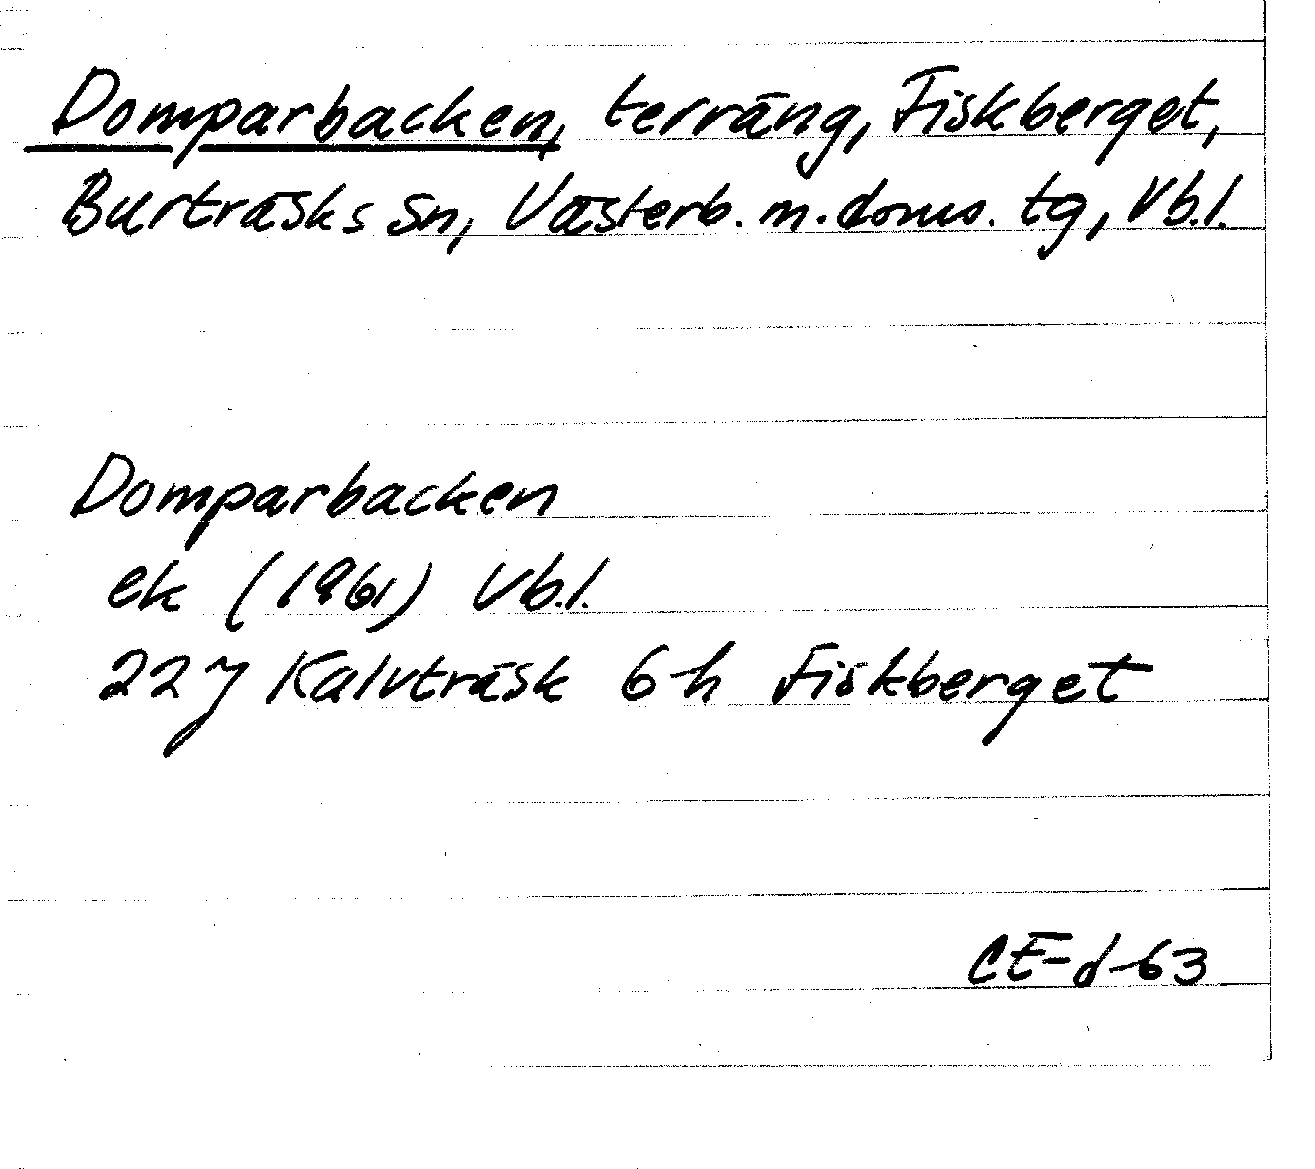 Domparbacken, terräng, Fiskberget,
Burträsks sn, Västerb. m. doms. tg, Vb.l.
Domparbacken
ek (1961) Vb.l.
22J Kalvträsk 6h Fiskberget
CE-d-63